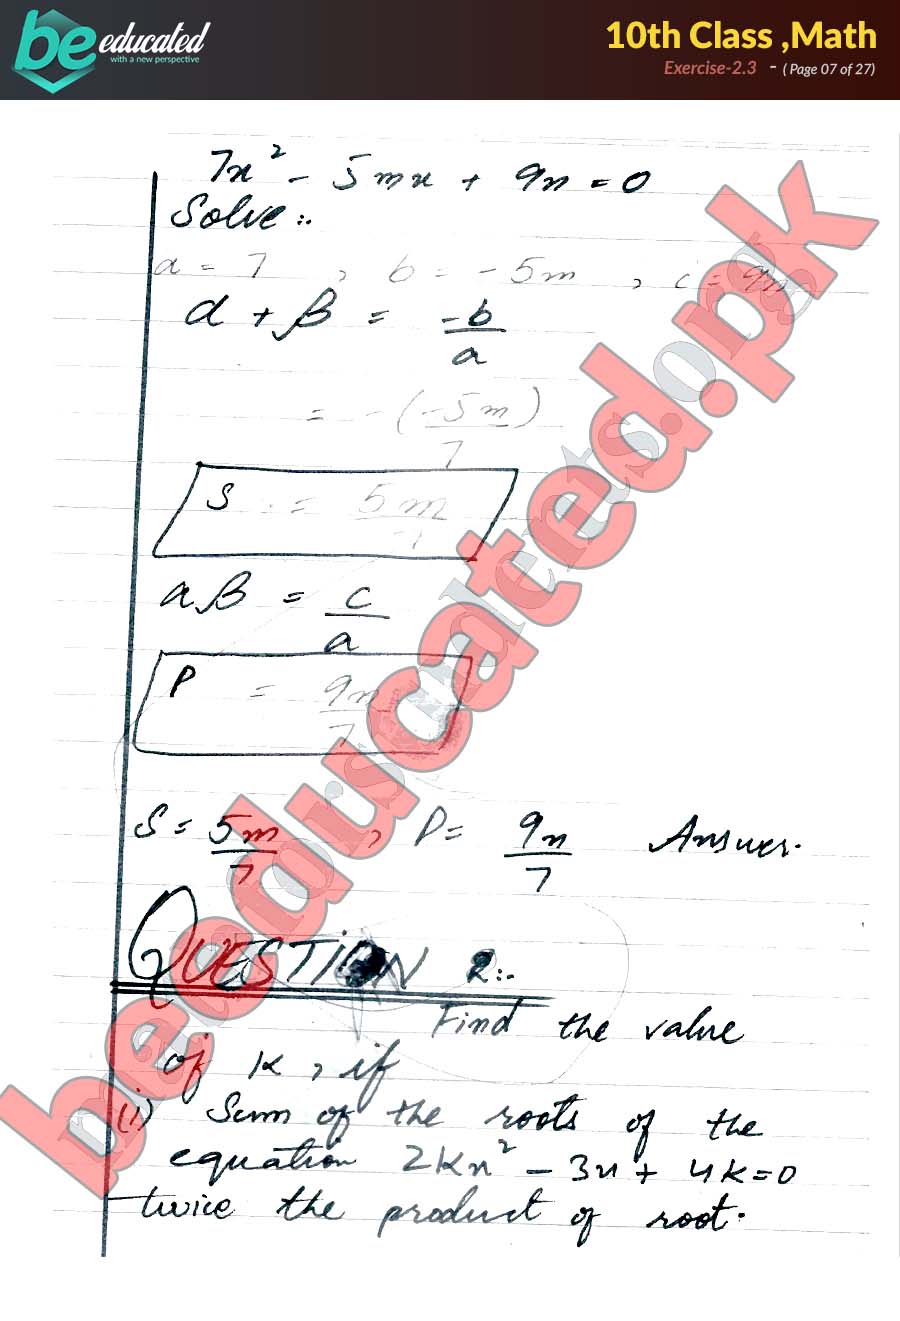 be educated
with a new perspective
10th Class ,Math
Exercise-2.3 - ( Page 07 of 27)
7x² - 5mx + 9n = 0
Solve:.
a = 7 , b = -5m , c = 9n
α + β = -b/a
= -(-5m)/7
S = 5m/7
αβ = c/a
P = 9n/7
S = 5m/7 , P = 9n/7 Answer.
QUESTION 2:.
Find the value
of K, if
(i) Sum of the roots of the
equation 2Kx² - 3x + 4K = 0
twice the product of root.
beeducated.pk